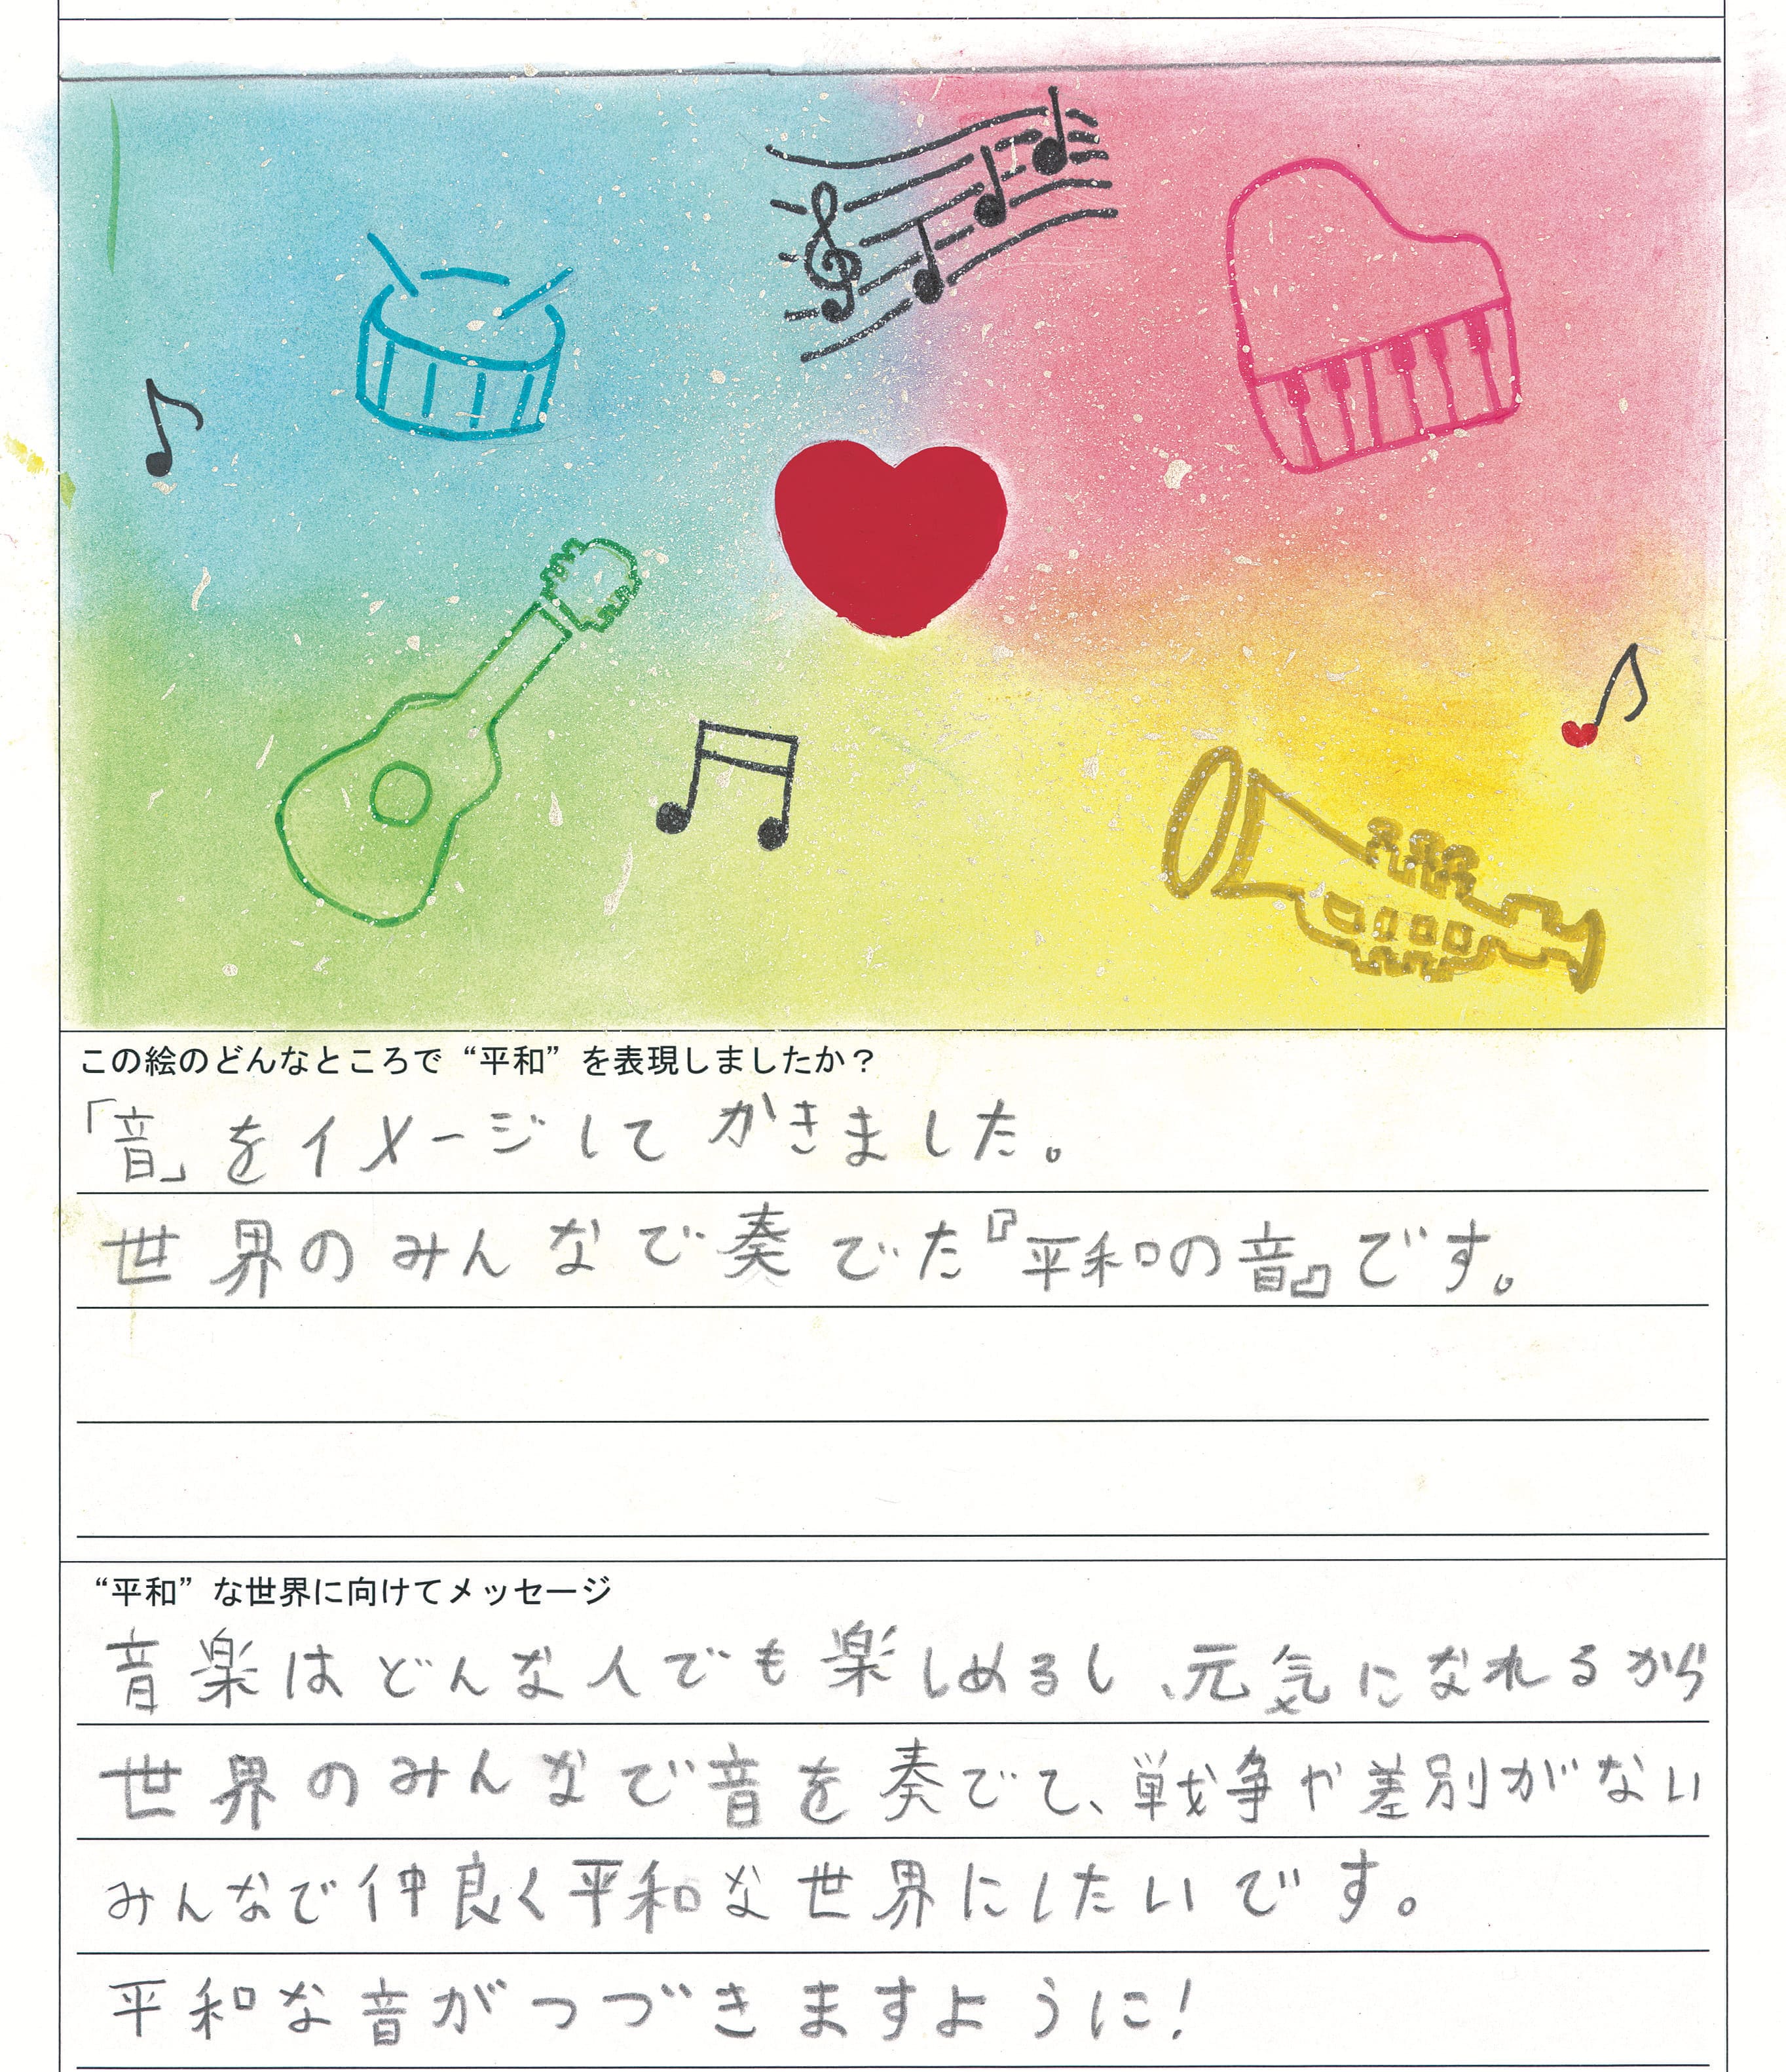 この絵のどんなところで“平和”を表現しましたか？
「音」をイメージしてかきました。
世界のみんなで奏でた『平和の音』です。
“平和”な世界に向けてメッセージ
音楽はどんな人でも楽しめるし、元気になれるから
世界のみんなで音を奏でて、戦争や差別がない
みんなで仲良く平和な世界にしたいです。
平和な音がつづきますように!